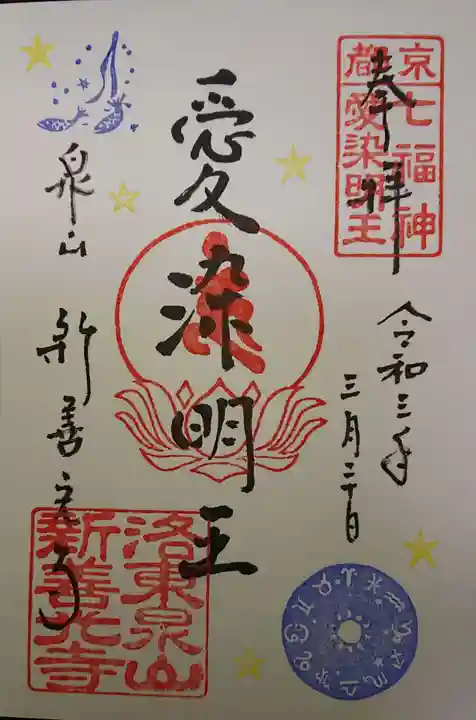 奉拝
京都
七福神
愛染明王
令和三年
三月二十日
愛染明王
泉山 新善光寺
洛東泉山
新善光寺
♈♉♊♋♌♍♎♏♐♑♒♓